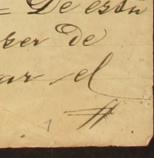 = De esta
zer de
ar el